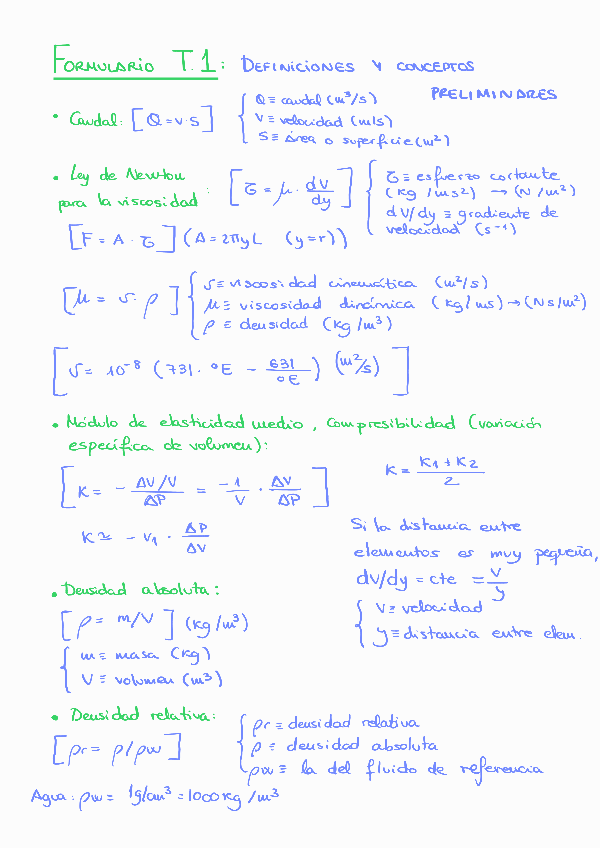 FORMULARIO T.1: DEFINICIONES Y CONCEPTOS
PRELIMINARES
• Caudal: [Q=v·S] { Q ≡ caudal (m³/s)
V ≡ velocidad (m/s)
S ≡ área o superficie (m²)
• Ley de Newton
para la viscosidad : [τ = μ · dV/dy] { τ ≡ esfuerzo cortante
(kg/ms²) → (N/m²)
dV/dy ≡ gradiente de
velocidad (s⁻¹)
[F = A · τ] (A = 2πyL (y=r))
[μ = υ · ρ] { υ ≡ viscosidad cinemática (m²/s)
μ ≡ viscosidad dinámica (kg/ms) → (Ns/m²)
ρ ≡ densidad (kg/m³)
[υ = 10⁻⁸ (731 · ºE − 631/ºE) (m²/s)]
• Módulo de elasticidad medio, compresibilidad (variación
específica de volumen):
[K = − ΔV/V / ΔP = −1/V · ΔV/ΔP]
K = K1 + K2 / 2
K ≃ − V1 · ΔP/ΔV
Si la distancia entre
elementos es muy pequeña,
dV/dy = cte = V/y
{ V ≡ velocidad
y ≡ distancia entre elem.
• Densidad absoluta:
[ρ = m/V] (kg/m³)
{ m ≡ masa (kg)
V ≡ volumen (m³)
• Densidad relativa:
[ρr = ρ/ρw] { ρr ≡ densidad relativa
ρ ≡ densidad absoluta
ρw ≡ la del fluido de referencia
Agua: ρw = 1g/cm³ = 1000 kg/m³